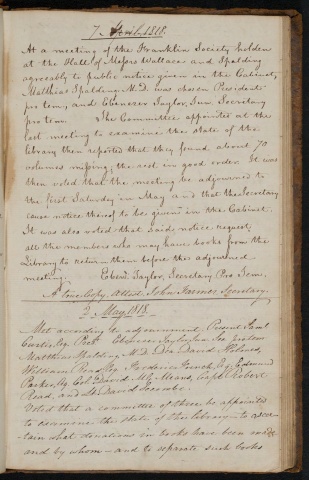 7 April, 1818.
At a meeting of the Franklin Society holden
at the Hall of Majors Wallace and Spalding
agreeably to public notice given in the Cabinet,
Matthias Spalding M.D. was chosen President
pro tem, and Ebenezer Taylor, Jun. Secretary
pro tem. The Committee appointed at the
last meeting to examine the state of the
library then reported that they found about 70
volumes missing, the rest in good order. It was
then voted that the meeting be adjourned to
the first Saturday in May and that the Secretary
cause notice thereof to be given in the Cabinet.
It was also voted that said notice request
all the members who may have books from the
Library to return them before the adjourned
meeting. Ebenr. Taylor, Secretary Pro Tem.
A true Copy. Attest, John Farmer Secretary.
2 May, 1818.
Met according to adjournment, Present Saml
Curtis, Esq. Ebenezer Taylor, Jun. Sec. pro tem
Matthias Spalding M.D. Dea. David Holmes,
William Read, Esq. Frederick French, Esq. Edmund
Parker, Esq. Col. David McG. Means, Capt. Robert
Read, and Lt. David
Voted that a committee of three be appointed
to examine the state of the library – to ascer-
tain what donations in books have been made
and by whom – and to separate such books